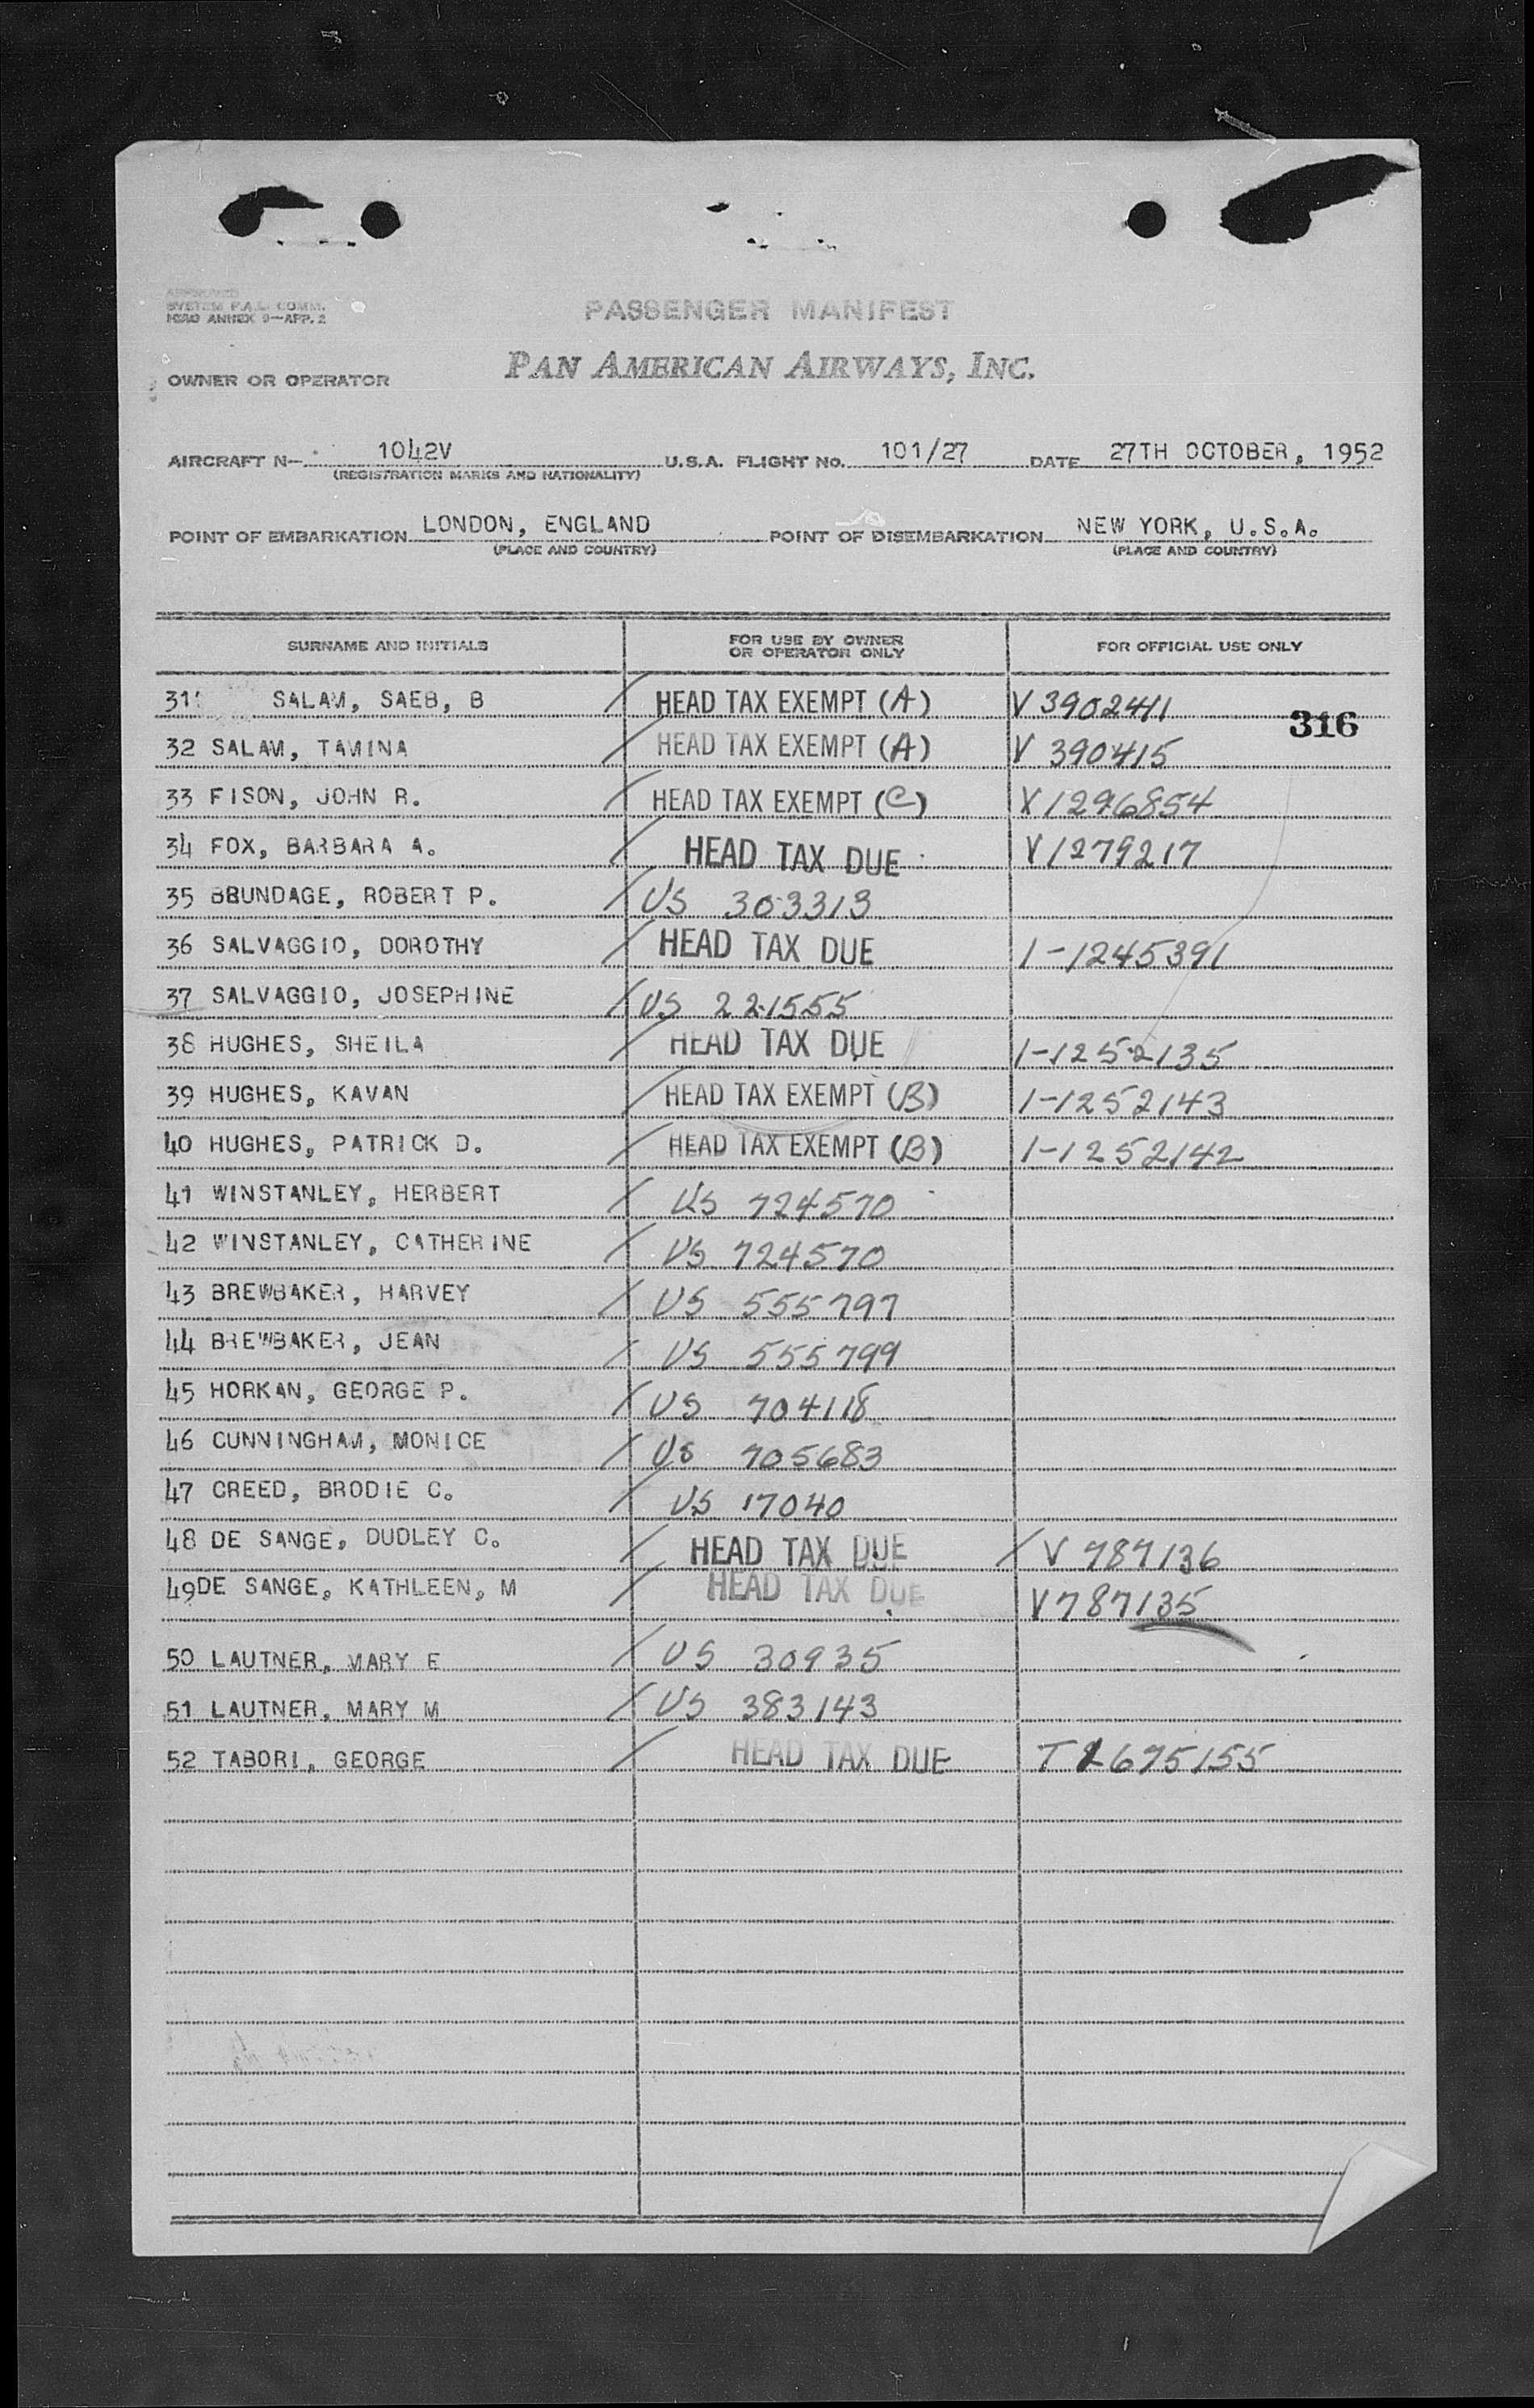 APPROVED
SYSTEM P.A.L. COMM.
ICAO ANNEX 9—APP. 2
PASSENGER MANIFEST
PAN AMERICAN AIRWAYS, INC.
OWNER OR OPERATOR
AIRCRAFT N— 1042V U.S.A. FLIGHT NO. 101/27 DATE 27TH OCTOBER, 1952
(REGISTRATION MARKS AND NATIONALITY)
POINT OF EMBARKATION LONDON, ENGLAND POINT OF DISEMBARKATION NEW YORK, U.S.A.
(PLACE AND COUNTRY) (PLACE AND COUNTRY)
SURNAME AND INITIALS FOR USE BY OWNER OR OPERATOR ONLY FOR OFFICIAL USE ONLY
31 SALAM, SAEB, B / HEAD TAX EXEMPT (A) V 3902411
316
32 SALAM, TAMINA / HEAD TAX EXEMPT (A) V 390415
33 FISON, JOHN R. / HEAD TAX EXEMPT (C) V 1296854
34 FOX, BARBARA A. / HEAD TAX DUE V 1279217
35 BRUNDAGE, ROBERT P. / US 303313
36 SALVAGGIO, DOROTHY / HEAD TAX DUE 1-1245391
37 SALVAGGIO, JOSEPHINE / US 221555
38 HUGHES, SHEILA / HEAD TAX DUE 1-1252135
39 HUGHES, KAVAN / HEAD TAX EXEMPT (B) 1-1252143
40 HUGHES, PATRICK D. / HEAD TAX EXEMPT (B) 1-1252142
41 WINSTANLEY, HERBERT / US 724570
42 WINSTANLEY, CATHERINE / US 724570
43 BREWBAKER, HARVEY / US 555797
44 BREWBAKER, JEAN / US 555799
45 HORKAN, GEORGE P. / US 704118
46 CUNNINGHAM, MONICE / US 705683
47 CREED, BRODIE C. / US 17040
48 DE SANGE, DUDLEY C. / HEAD TAX DUE / V 787136
49DE SANGE, KATHLEEN, M / HEAD TAX DUE V787135
50 LAUTNER, MARY E / US 30935
51 LAUTNER, MARY M / US 383143
52 TABORI, GEORGE / HEAD TAX DUE T 2675155